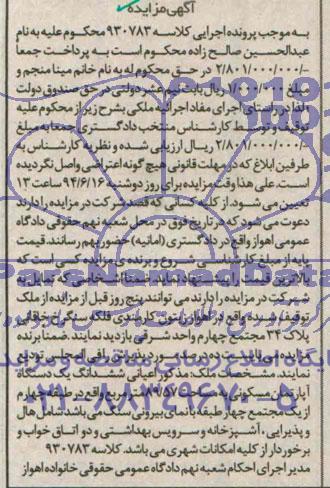 آگهی مزایده
به موجب پرونده اجرایی کلاسه ۹۳۰۷۸۳ محکوم علیه به نام
عبدالحسین صالح زاده محکوم است به پرداخت جمعا
۲/۸۰۱/۰۰۰/۰۰۰/- در حق محکوم له به نام خانم مینا منجم و
مبلغ ۱/۰۰۰/۰۰۰ ریال بابت نیم عشر دولتی در حق صندوق دولت
لذا در راستای اجرای مفاد اجرائیه ملکی بشرح زیر از محکوم علیه
توقیف و توسط کارشناس منتخب دادگستری جمعا به مبلغ
۲/۸۰۱/۰۰۰/۰۰۰/- ریال ارزیابی شده و نظریه کارشناس به
طرفین ابلاغ که در مهلت قانونی هیچ گونه اعتراضی واصل نگردیده
است. علی هذا وقت مزایده برای روز دوشنبه ۹۴/۶/۱۶ ساعت ۱۳
تعیین می شود. از کلیه کسانی که قصد شرکت در مزایده را دارند
دعوت می شود که در تاریخ فوق در محل شعبه نهم حقوقی دادگاه
عمومی اهواز واقع در دادگستری (امانیه) حضور بهم رسانند. قیمت
پایه از مبلغ کارشناسی شروع و برنده ی مزایده کسی است که
بالاترین قیمت را پیشنهاد نماید. ضمنا اشخاصی که تمایل به
شرکت در مزایده را دارند می توانند پنج روز قبل از مزایده از ملک
توقیف شده واقع در اهواز زیتون کارمندی فلکه سهراج خاقانی
پلاک ۳۴ مجتمع چهارم واحد شرقی بازدید نمایند. ضمنا برنده
مزایده می بایست ده درصد مورد پذیرش را فی المجلس تودیع
نمایند. مشخصات ملک: مذکور اعیانی ششدانگ یک دستگاه
آپارتمان مسکونی به مساحت ۱۸۹/۵۷ متر مربع واقع در طبقه چهارم
از یک مجتمع چهار طبقه با نمای بیرونی سنگ می باشد شامل هال
و پذیرایی، آشپزخانه و سرویس بهداشتی و دو اتاق خواب و
برخوردار از کلیه امکانات شهری می باشد. کلاسه ۹۳۰۷۸۳
مدیر اجرای احکام شعبه نهم دادگاه عمومی حقوقی خانواده اهواز
ParsNamadData
۰۲۱-۸۸۳۴۹۶۷۰-۵